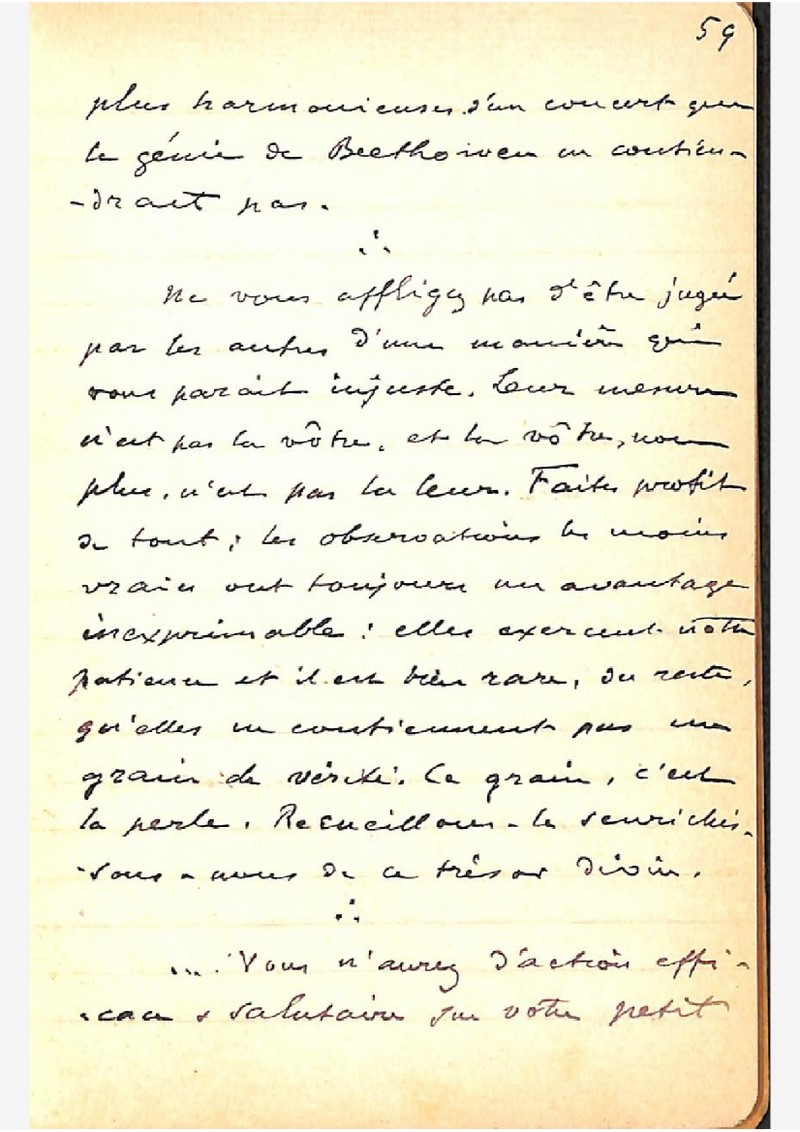 59
plus harmonieuses d'un concert que
le génie de Beethowen ne contien-
-drait pas.
∴
Ne vous affligez pas d'être jugé
par les autres d'une manière qui
vous parait injuste. Leur mesure
n'est pas la vôtre, et la vôtre, non
plus, n'est pas la leur. Faites profit
de tout ; les observations les moins
vraies ont toujours un avantage
inexprimable : elles exercent notre
patience et il est bien rare, du reste,
qu'elles ne contiennent pas un
grain de vérité. Ce grain, c'est
la perle. Recueillons-le & enrichis-
-sons-nous de ce trésor divin.
∴
... Vous n'aurez d'action effi-
-cace & salutaire sur votre petit